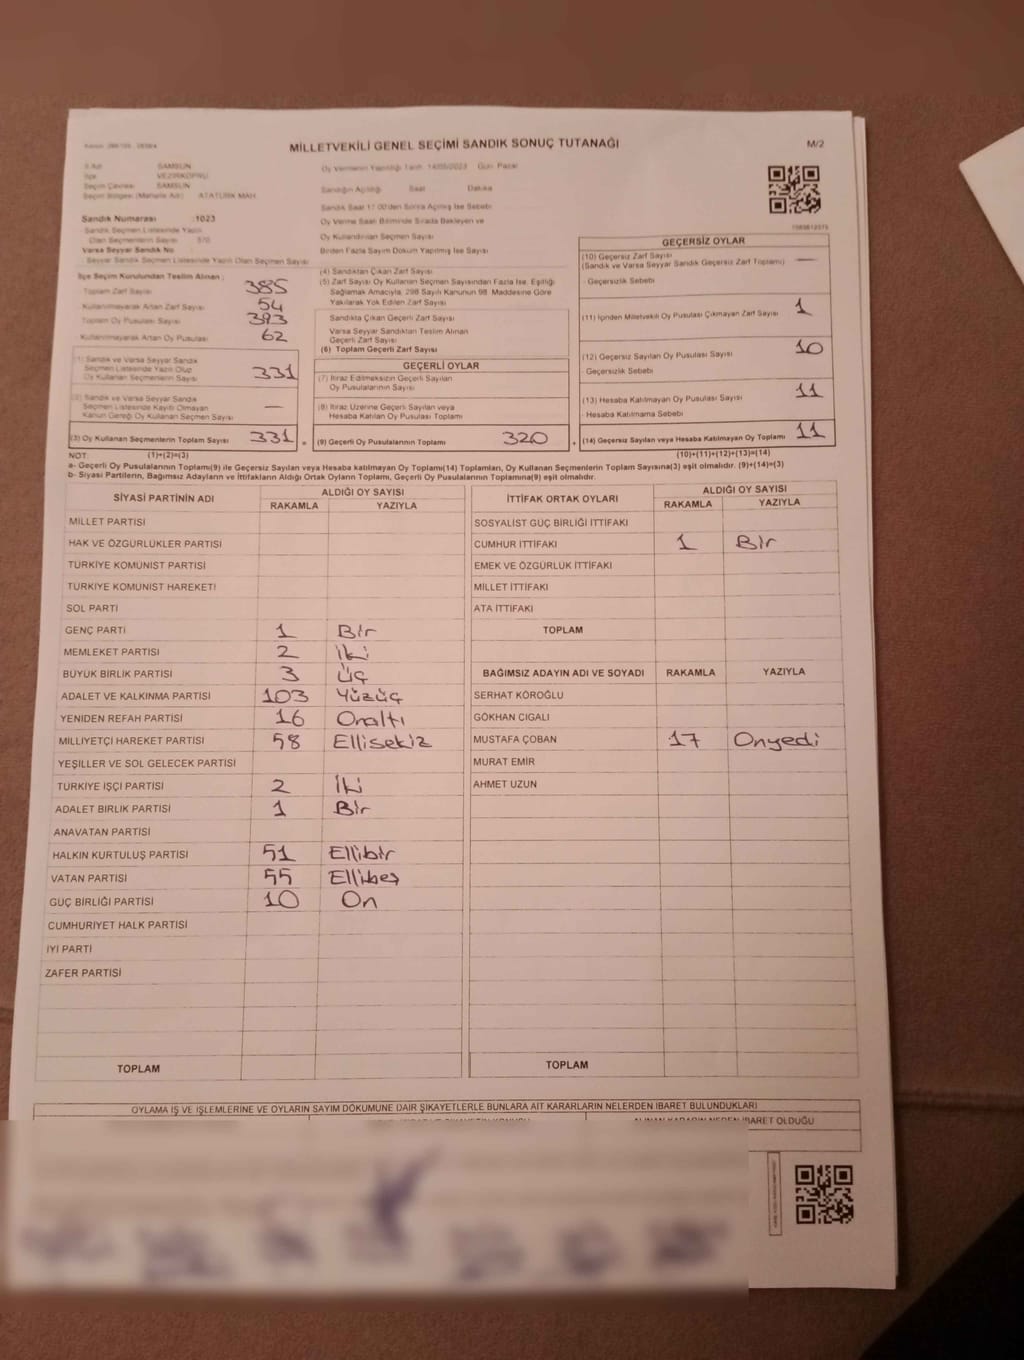 MİLLETVEKİLİ GENEL SEÇİMİ SANDIK SONUÇ TUTANAĞI
M/2
İl Adı SAMSUN
İlçe VEZİRKÖPRÜ
Seçim Çevresi SAMSUN
Seçim Bölgesi (Mahalle Adı) ATATÜRK MAH.
Sandık Numarası :1023
Sandık Seçmen Listesinde Yazılı
Olan Seçmenlerin Sayısı 370
Varsa Seyyar Sandık No
Seyyar Sandık Seçmen Listesinde Yazılı Olan Seçmen Sayısı
İlçe Seçim Kurulundan Teslim Alınan :
Toplam Zarf Sayısı 385
Kullanılmayarak Artan Zarf Sayısı 54
Toplam Oy Pusulası Sayısı 393
Kullanılmayarak Artan Oy Pusulası 62
(1) Sandık ve Varsa Seyyar Sandık
Seçmen Listesinde Yazılı Olup
Oy Kullanan Seçmenlerin Sayısı 331
(2) Sandık ve Varsa Seyyar Sandık
Seçmen Listesinde Kayıtlı Olmayan
Kanun Gereği Oy Kullanan Seçmen Sayısı —
(3) Oy Kullanan Seçmenlerin Toplam Sayısı 331 =
Oy Vermenin Yapıldığı Tarih 14/05/2023 Gün Pazar
Sandığın Açıldığı Saat Dakika
Sandık Saat 17.00'den Sonra Açılmış İse Sebebi
Oy Verme Saati Bitiminde Sırada Bekleyen ve
Oy Kullandırılan Seçmen Sayısı
Birden Fazla Sayım Döküm Yapılmış İse Sayısı
(4) Sandıktan Çıkan Zarf Sayısı
(5) Zarf Sayısı Oy Kullanan Seçmen Sayısından Fazla İse, Eşitliği
Sağlamak Amacıyla, 298 Sayılı Kanunun 98. Maddesine Göre
Yakılarak Yok Edilen Zarf Sayısı
Sandıkta Çıkan Geçerli Zarf Sayısı
Varsa Seyyar Sandıktan Teslim Alınan
Geçerli Zarf Sayısı
(6) Toplam Geçerli Zarf Sayısı
GEÇERLİ OYLAR
(7) İtiraz Edilmeksizin Geçerli Sayılan
Oy Pusulalarının Sayısı
(8) İtiraz Üzerine Geçerli Sayılan veya
Hesaba Katılan Oy Pusulası Toplamı
(9) Geçerli Oy Pusulalarının Toplamı 320 +
GEÇERSİZ OYLAR
(10) Geçersiz Zarf Sayısı
(Sandık ve Varsa Seyyar Sandık Geçersiz Zarf Toplamı) —
Geçersizlik Sebebi
(11) İçinden Milletvekili Oy Pusulası Çıkmayan Zarf Sayısı 1
(12) Geçersiz Sayılan Oy Pusulası Sayısı 10
Geçersizlik Sebebi
(13) Hesaba Katılmayan Oy Pusulası Sayısı 11
Hesaba Katılmama Sebebi
(14) Geçersiz Sayılan veya Hesaba Katılmayan Oy Toplamı 11
NOT: (1)+(2)=(3) (10)+(11)+(12)+(13)=(14)
a- Geçerli Oy Pusulalarının Toplamı(9) ile Geçersiz Sayılan veya Hesaba katılmayan Oy Toplamı(14) Toplamları, Oy Kullanan Seçmenlerin Toplam Sayısına(3) eşit olmalıdır. (9)+(14)=(3)
b- Siyasi Partilerin, Bağımsız Adayların ve İttifakların Aldığı Ortak Oyların Toplamı, Geçerli Oy Pusulalarının Toplamına(9) eşit olmalıdır.
SİYASİ PARTİNİN ADI ALDIĞI OY SAYISI
RAKAMLA YAZIYLA
MİLLET PARTİSİ
HAK VE ÖZGÜRLÜKLER PARTİSİ
TÜRKİYE KOMÜNİST PARTİSİ
TÜRKİYE KOMÜNİST HAREKETİ
SOL PARTİ
GENÇ PARTİ 1 Bir
MEMLEKET PARTİSİ 2 İki
BÜYÜK BİRLİK PARTİSİ 3 Üç
ADALET VE KALKINMA PARTİSİ 103 Yüzüç
YENİDEN REFAH PARTİSİ 16 Onaltı
MİLLİYETÇİ HAREKET PARTİSİ 58 Ellisekiz
YEŞİLLER VE SOL GELECEK PARTİSİ
TÜRKİYE İŞÇİ PARTİSİ 2 İki
ADALET BİRLİK PARTİSİ 1 Bir
ANAVATAN PARTİSİ
HALKIN KURTULUŞ PARTİSİ 51 Ellibir
VATAN PARTİSİ 55 Ellibeş
GÜÇ BİRLİĞİ PARTİSİ 10 On
CUMHURİYET HALK PARTİSİ
İYİ PARTİ
ZAFER PARTİSİ
TOPLAM
İTTİFAK ORTAK OYLARI ALDIĞI OY SAYISI
RAKAMLA YAZIYLA
SOSYALİST GÜÇ BİRLİĞİ İTTİFAKI
CUMHUR İTTİFAKI 1 Bir
EMEK VE ÖZGÜRLÜK İTTİFAKI
MİLLET İTTİFAKI
ATA İTTİFAKI
TOPLAM
BAĞIMSIZ ADAYIN ADI VE SOYADI RAKAMLA YAZIYLA
SERHAT KÖROĞLU
GÖKHAN CIGALI
MUSTAFA ÇOBAN 17 Onyedi
MURAT EMİR
AHMET UZUN
TOPLAM
OYLAMA İŞ VE İŞLEMLERİNE VE OYLARIN SAYIM DÖKÜMÜNE DAİR ŞİKAYETLERLE BUNLARA AİT KARARLARIN NELERDEN İBARET BULUNDUKLARI
İBARET OLDUĞU